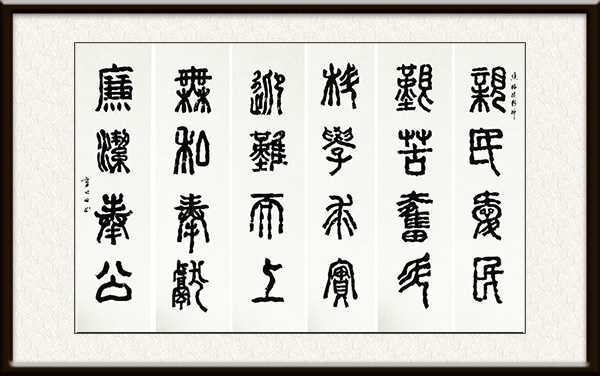 焦裕禄精神
親民愛民
艱苦奮斗
科學求實
迎難而上
無私奉獻
廉潔奉公